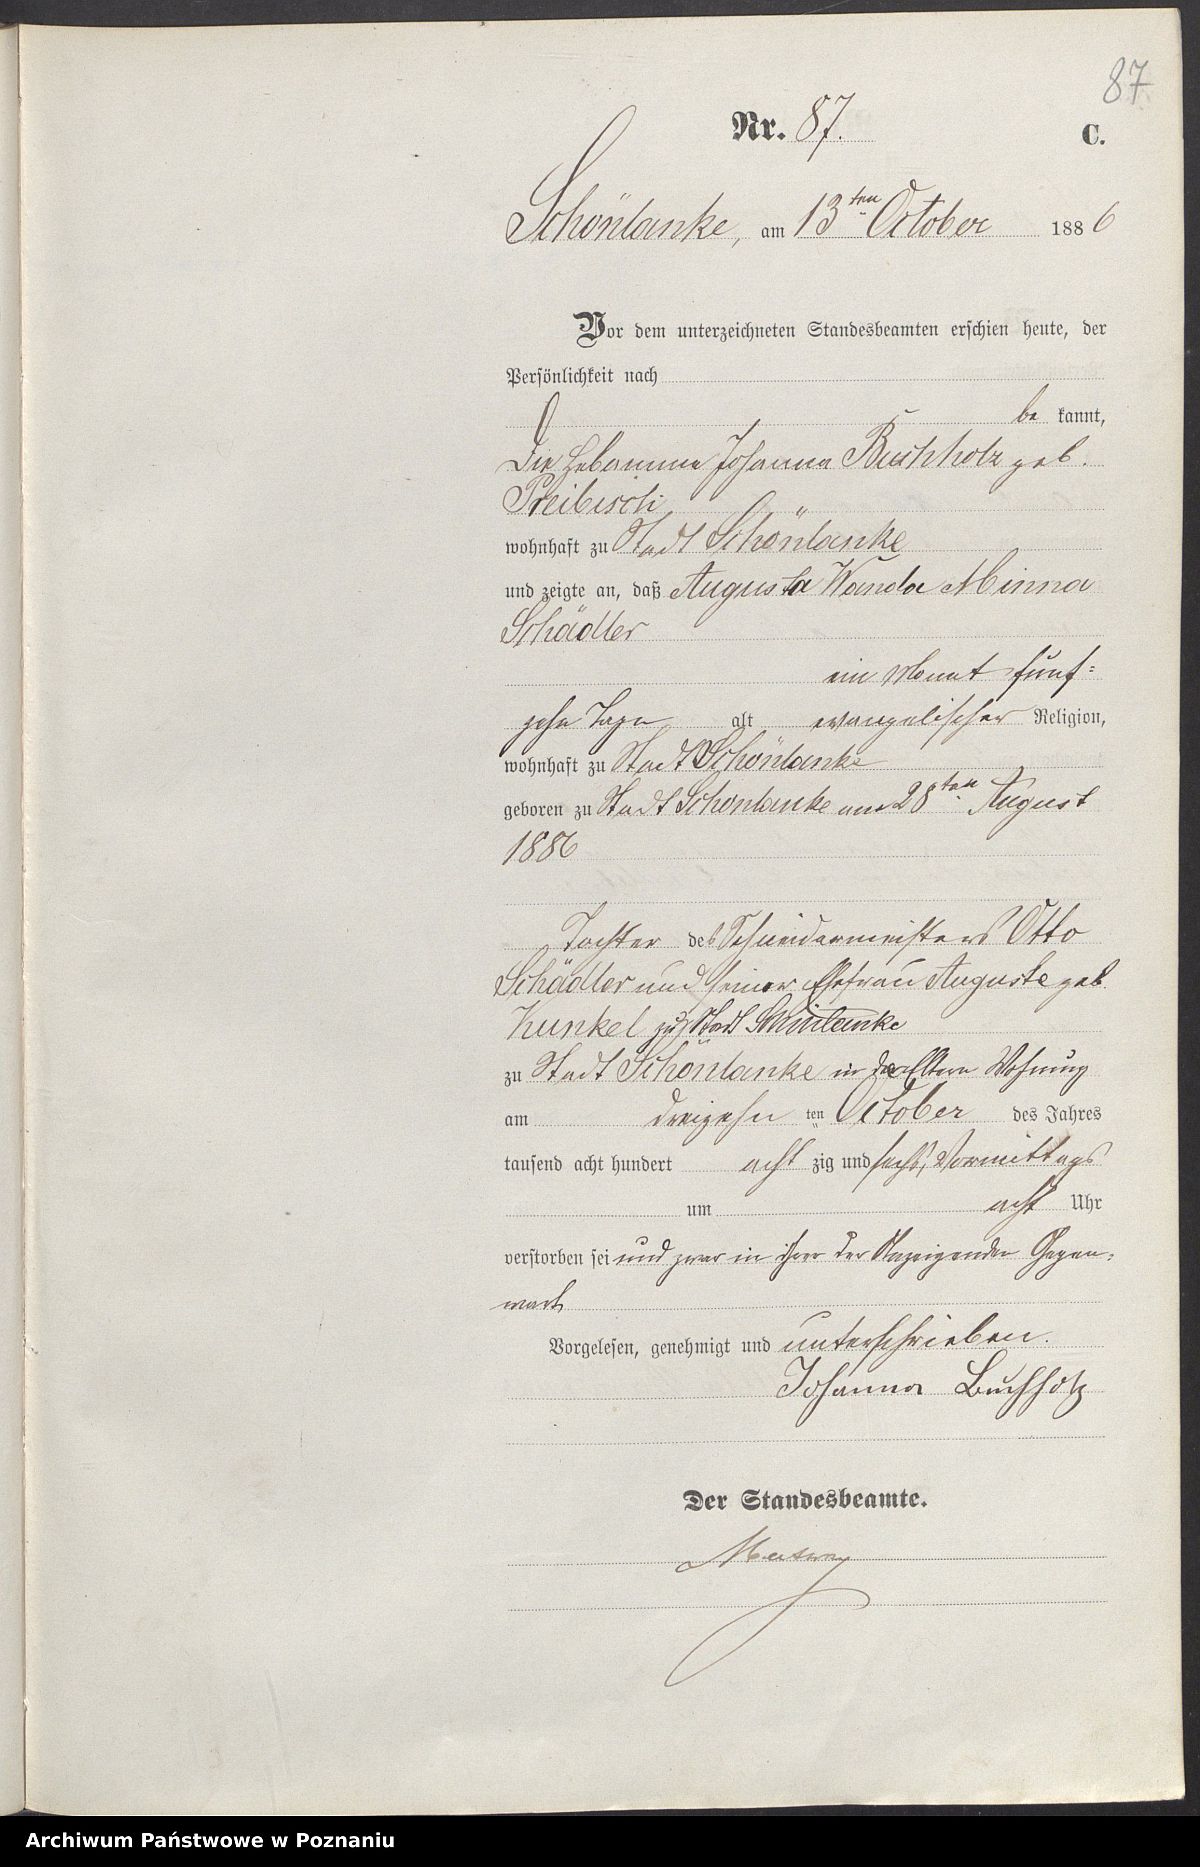 87
Nr. 87.
C.
Schönlanke, am 13ten October 1886
Vor dem unterzeichneten Standesbeamten erschien heute, der
Persönlichkeit nach
be kannt,
Die Hebamme Johanna Buchholz geb.
Preibisch
wohnhaft zu Stadt Schönlanke
und zeigte an, daß Augusta Wanda Minna
Schädler
ein Monat fünf-
zehn Tage alt evangelischer Religion,
wohnhaft zu Stadt Schönlanke
geboren zu Stadt Schönlanke am 28ten August
1886
Tochter des Schneidermeisters Otto
Schädler und seiner Ehefrau Auguste geb.
Kunkel zu Stadt Schönlanke
zu Stadt Schönlanke in der Eltern Wohnung
am dreizehn ten October des Jahres
tausend acht hundert acht zig und sechs, Vormittags
um acht Uhr
verstorben sei und zwar in ihrer der Anzeigenden Gegen-
wart
Vorgelesen, genehmigt und unterschrieben.
Johanna Buchholz
Der Standesbeamte.
Archiwum Państwowe w Poznaniu